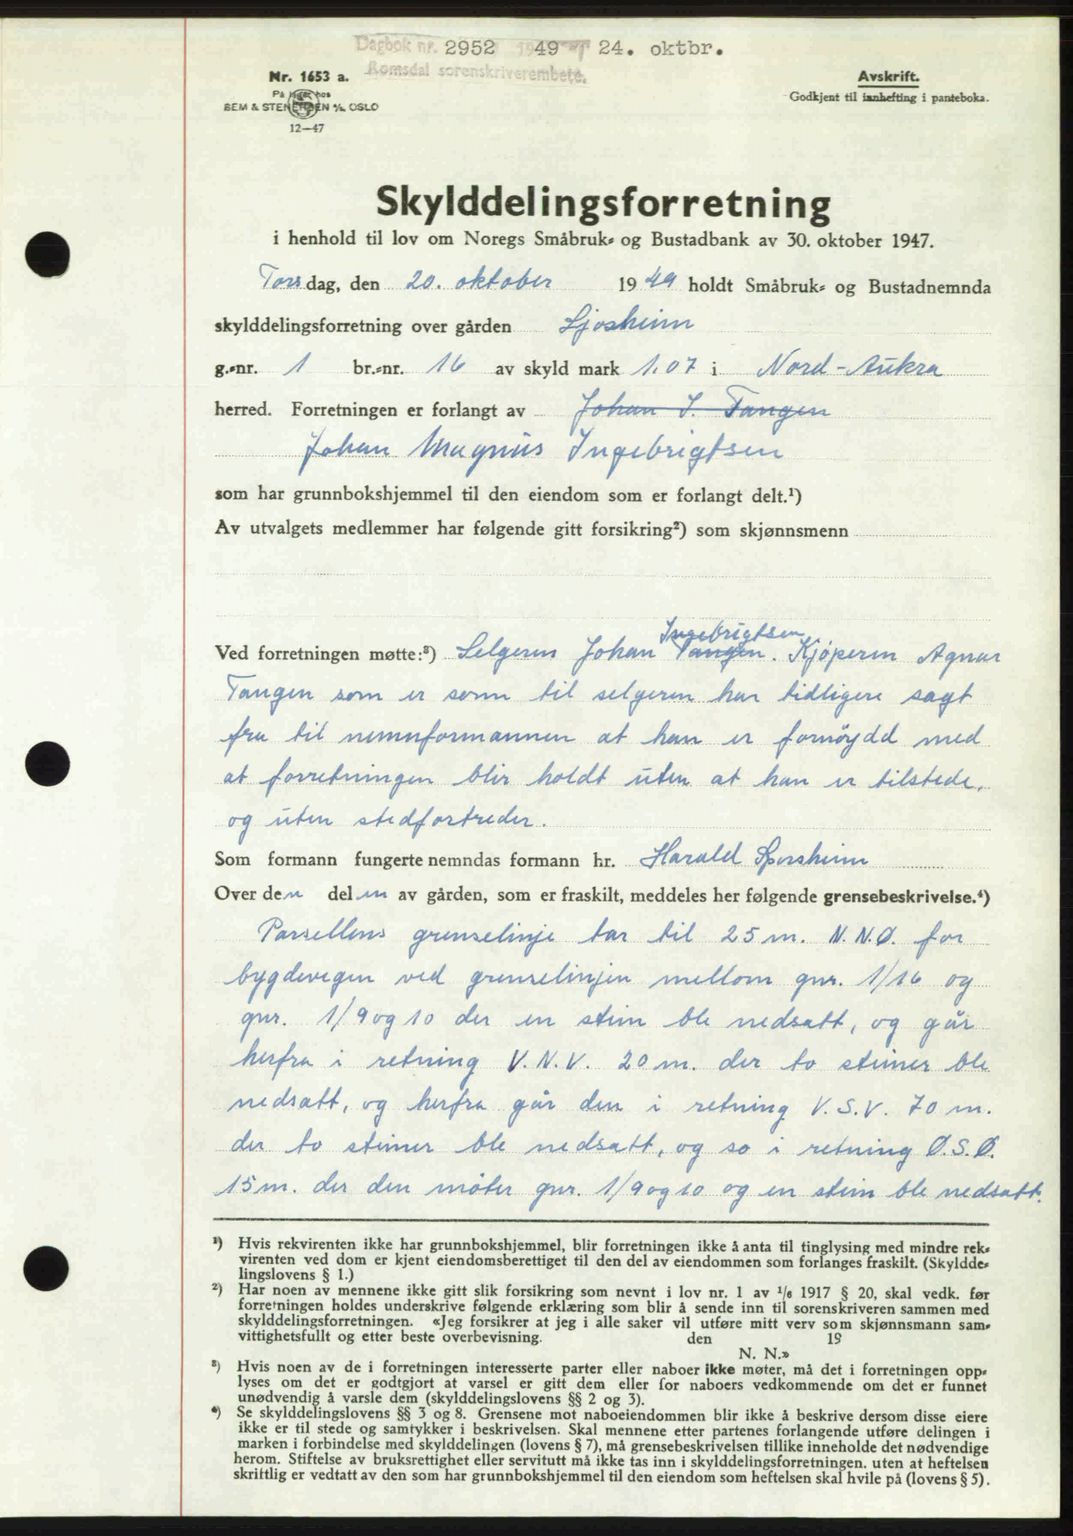 Dagbok nr. 2952 1949 24. oktbr.
Romsdal sorenskriverembete.
Nr. 1653 a.
På lager hos
SEM & STENERSEN A/S OSLO
12—47
Avskrift.
Godkjent til innhefting i panteboka.
Skylddelingsforretning
i henhold til lov om Noregs Småbruk- og Bustadbank av 30. oktober 1947.
Torsdag, den 20. oktober 1949 holdt Småbruk- og Bustadnemnda
skylddelingsforretning over gården Ljosheim
g.-nr. 1 br.-nr. 16 av skyld mark 1.07 i Nord-Aukra
herred. Forretningen er forlangt av Johan I. Tangen
Johan Magnus Ingebrigtsen
som har grunnbokshjemmel til den eiendom som er forlangt delt.¹)
Av utvalgets medlemmer har følgende gitt forsikring²) som skjønnsmenn
Ingebrigtsen
Ved forretningen møtte:³) Selgeren Johan Tangen. Kjøperen Agnar
Tangen som er sønn til selgeren har tidligere sagt
fra til nemnformannen at han er fornøydd med
at forretningen blir holdt uten at han er tilstede,
og uten stedfortreder.
Som formann fungerte nemndas formann hr. Harald Sporsheim
Over den delen av gården, som er fraskilt, meddeles her følgende grensebeskrivelse.⁴)
Parsellens grenselinje tar til 25 m. N.N.Ø. for
bygdevegen ved grenselinjen mellom gnr. 1/16 og
gnr. 1/9 og 10 der en stein ble nedsatt, og går
herfra i retning V.N.V. 20 m. der to steiner ble
nedsatt, og herfra går den i retning V.S.V. 70 m.
der to steiner ble nedsatt, og so i retning Ø.S.Ø.
15 m. der den møter gnr. 1/9 og 10 og en stein ble nedsatt.
¹) Hvis rekvirenten ikke har grunnbokshjemmel, blir forretningen ikke å anta til tinglysing med mindre rek-
virenten ved dom er kjent eiendomsberettiget til den del av eiendommen som forlanges fraskilt. (Skyldde-
lingslovens § 1.)
²) Har noen av mennene ikke gitt slik forsikring som nevnt i lov nr. 1 av 1/6 1917 § 20, skal vedk. før
forretningen holdes underskrive følgende erklæring som blir å sende inn til sorenskriveren sammen med
skylddelingsforretningen. «Jeg forsikrer at jeg i alle saker vil utføre mitt verv som skjønnsmann sam-
vittighetsfullt og etter beste overbevisning. den 19
N. N.»
³) Hvis noen av de i forretningen interesserte parter eller naboer ikke møter, må det i forretningen opp-
lyses om det er godtgjort at varsel er gitt dem eller for naboers vedkommende om det er funnet
unødvendig å varsle dem (skylddelingslovens §§ 2 og 3).
⁴) Se skylddelingslovens §§ 3 og 8. Grensene mot naboeiendommen blir ikke å beskrive dersom disse eiere
ikke er til stede og samtykker i beskrivelsen. Skal mennene etter partenes forlangende utføre delingen i
marken i forbindelse med skylddelingen (lovens § 7), må grensebeskrivelsen tillike inneholde det nødvendige
herom. Stiftelse av bruksrettighet eller servitutt må ikke tas inn i skylddelingsforretningen. uten at heftelsen
skriftlig er vedtatt av den som har grunnbokshjemmel til den eiendom som heftelsen skal hvile på (lovens § 5).